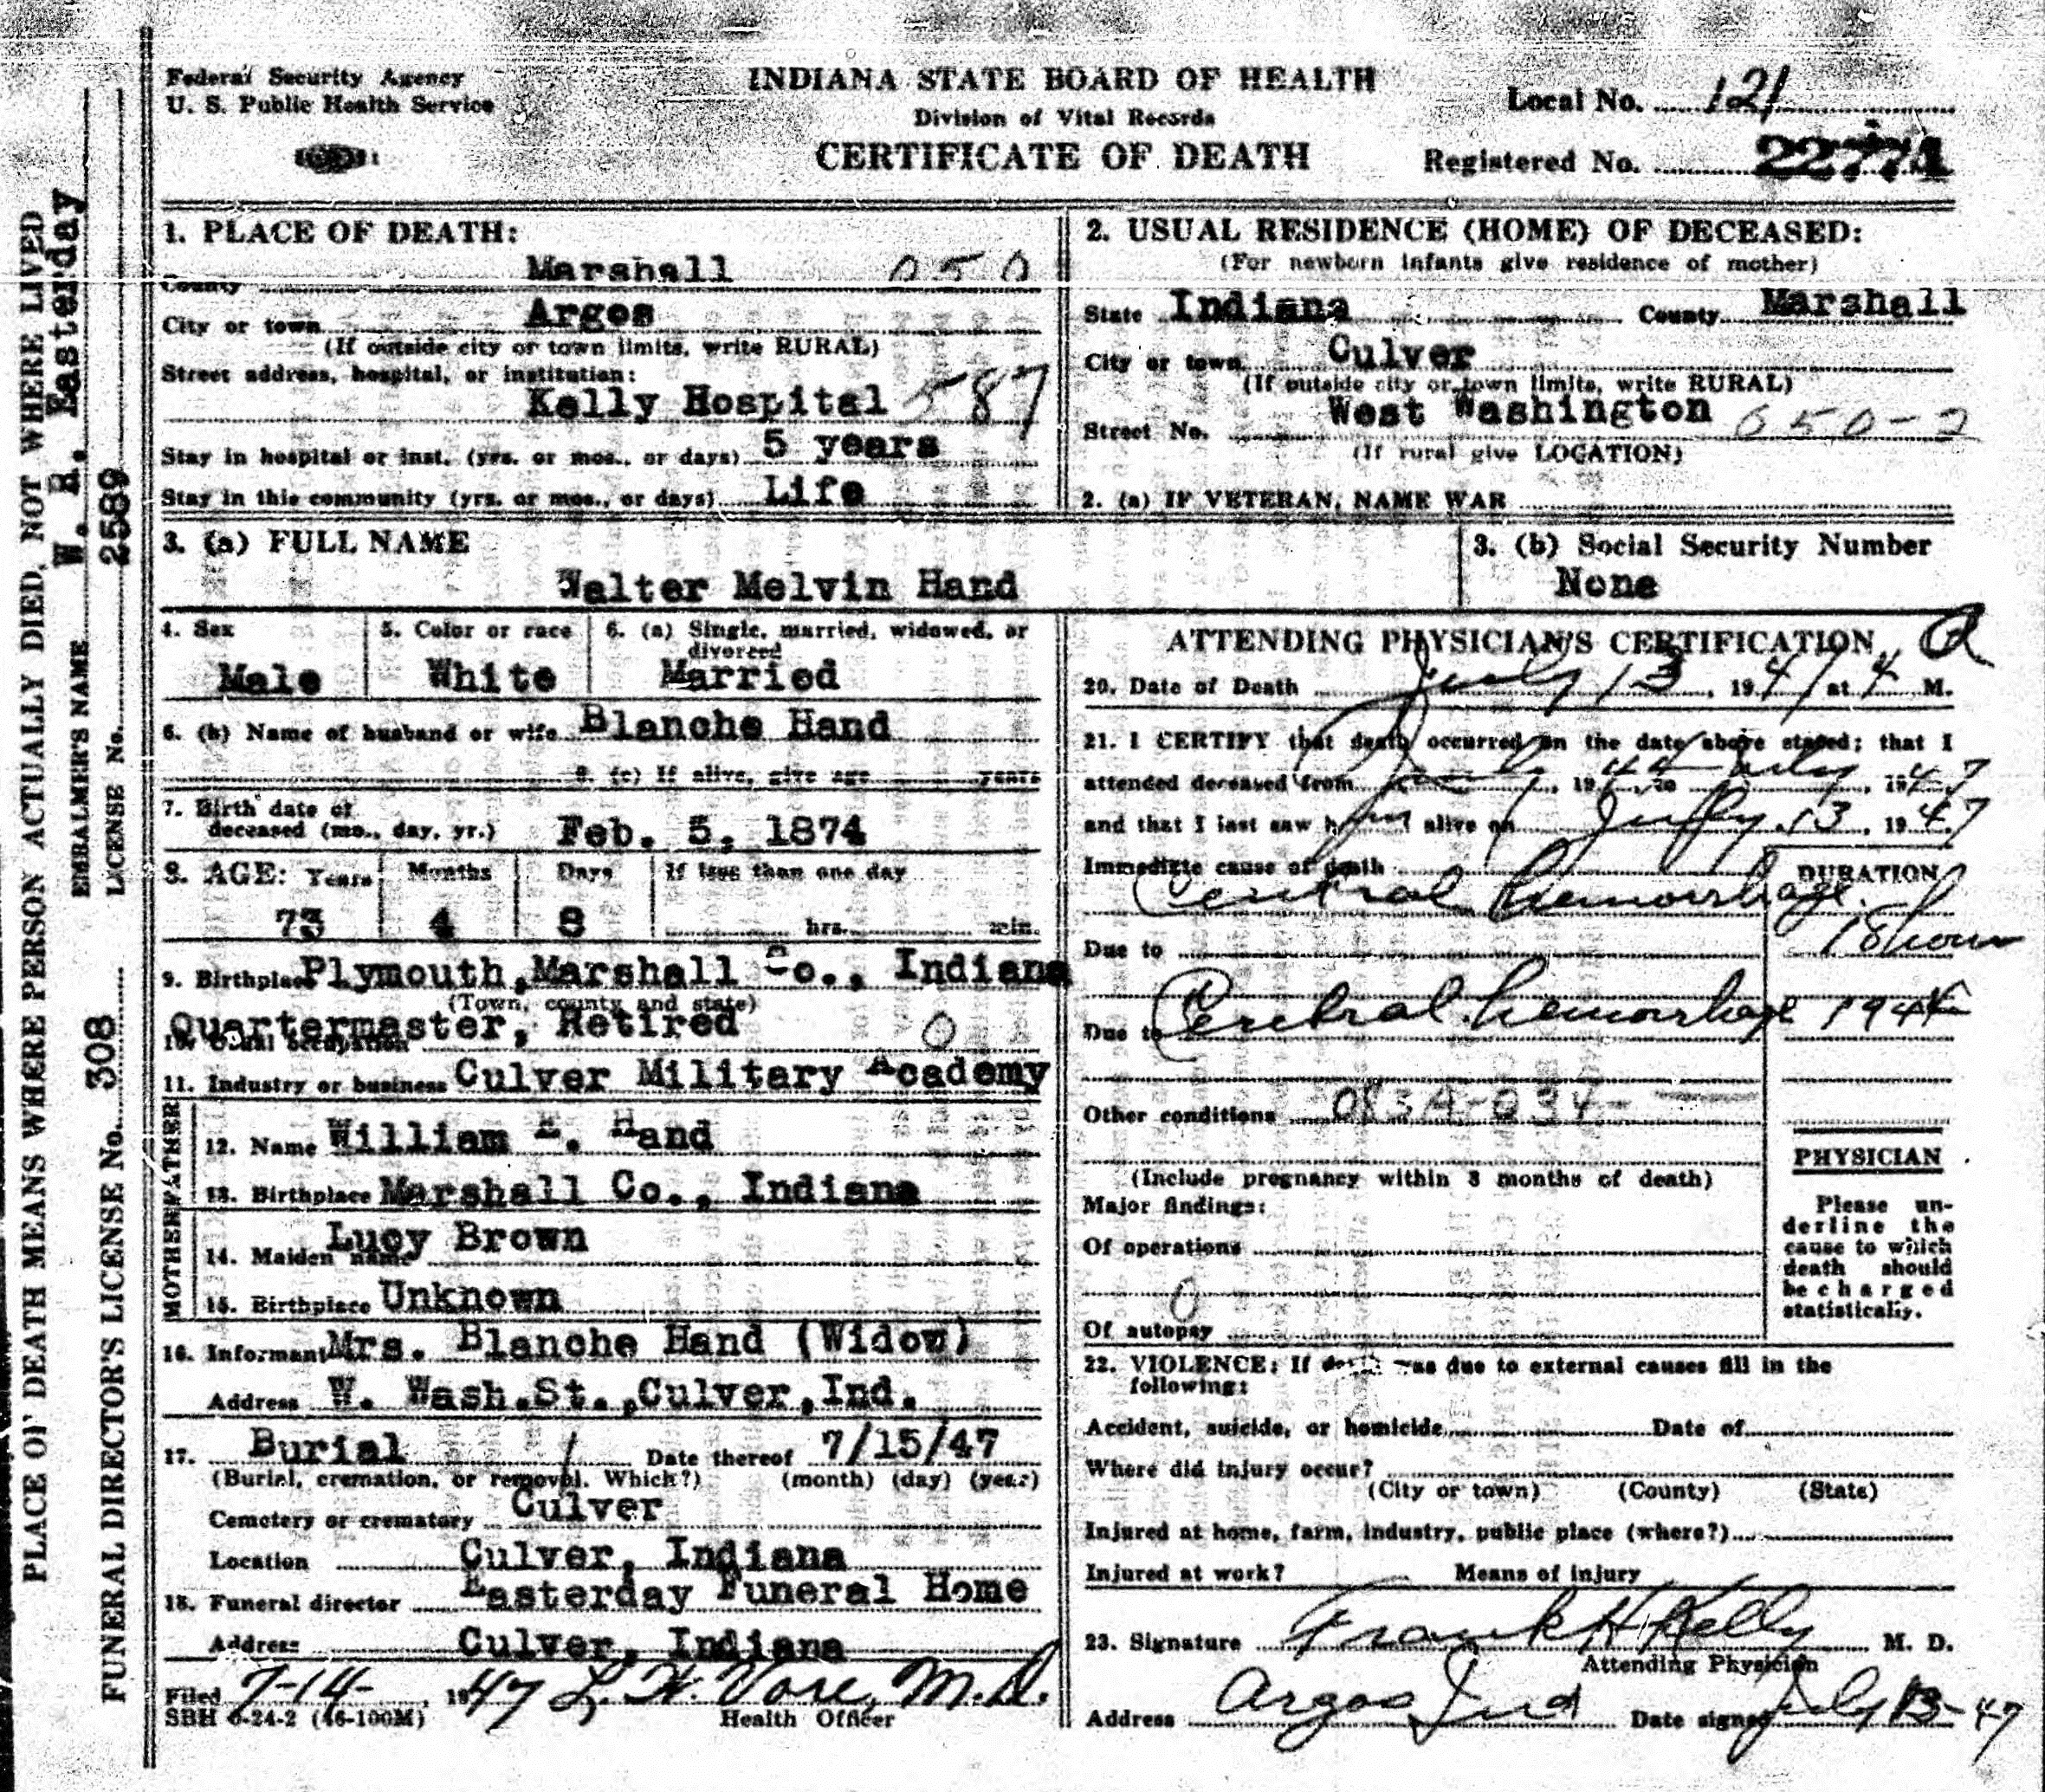 Federal Security Agency
U. S. Public Health Service
INDIANA STATE BOARD OF HEALTH
Division of Vital Records
CERTIFICATE OF DEATH
Local No. 121
Registered No. 22771
1. PLACE OF DEATH:
County Marshall 050
City or town Argos
(If outside city or town limits, write RURAL)
Street address, hospital, or institution:
Kelly Hospital 587
Stay in hospital or inst. (yrs. or mos., or days) 5 years
Stay in this community (yrs. or mos., or days) Life
2. USUAL RESIDENCE (HOME) OF DECEASED:
(For newborn infants give residence of mother)
State Indiana County Marshall
City or town Culver
(If outside city or town limits, write RURAL)
Street No. West Washington 650-2
(If rural give LOCATION)
2. (a) IF VETERAN, NAME WAR
3. (a) FULL NAME
Walter Melvin Hand
3. (b) Social Security Number
None
4. Sex
Male
5. Color or race
White
6. (a) Single, married, widowed, or divorced
Married
6. (b) Name of husband or wife Blanche Hand
6. (c) If alive, give age years
7. Birth date of
deceased (mo., day, yr.) Feb. 5, 1874
8. AGE: Years Months Days If less than one day
73 4 8 hrs. min.
9. Birthplace Plymouth, Marshall Co., Indiana
(Town, county and state)
10. Usual occupation Quartermaster, Retired 0
11. Industry or business Culver Military Academy
FATHER
12. Name William E. Hand
13. Birthplace Marshall Co., Indiana
MOTHER
14. Maiden name Lucy Brown
15. Birthplace Unknown
16. Informant Mrs. Blanche Hand (Widow)
Address W. Wash.St.,Culver,Ind.
17. Burial Date thereof 7/15/47
(Burial, cremation, or removal. Which?) (month) (day) (year)
Cemetery or crematory Culver
Location Culver, Indiana
18. Funeral director Easterday Funeral Home
Address Culver, Indiana
Filed 7-14-, 1947 L. W. Vore, M.D.
SBH 6-24-2 (46-100M) Health Officer
ATTENDING PHYSICIAN'S CERTIFICATION
20. Date of Death July 13, 1947 at 4 M.
21. I CERTIFY that death occurred on the date above stated; that I
attended deceased from July, 1944, to July, 1947
and that I last saw him alive on July 13, 1947
Immediate cause of death DURATION
Central hemorrhage. 18 hour
Due to
Due to Cerebral hemorrhage 1944
Other conditions 083A-034-
(Include pregnancy within 3 months of death)
Major findings:
Of operations
0
Of autopsy
PHYSICIAN
Please un-
derline the
cause to which
death should
be charged
statistically.
22. VIOLENCE: If death was due to external causes fill in the
following:
Accident, suicide, or homicide Date of
Where did injury occur?
(City or town) (County) (State)
Injured at home, farm, industry, public place (where?)
Injured at work? Means of injury
23. Signature Frank H Kelly M. D.
Attending Physician
Address Argos Ind Date signed July 13-47
PLACE OF DEATH MEANS WHERE PERSON ACTUALLY DIED, NOT WHERE LIVED
EMBALMER'S NAME W. R. Easterday
FUNERAL DIRECTOR'S LICENSE No. 308 LICENSE No. 2589